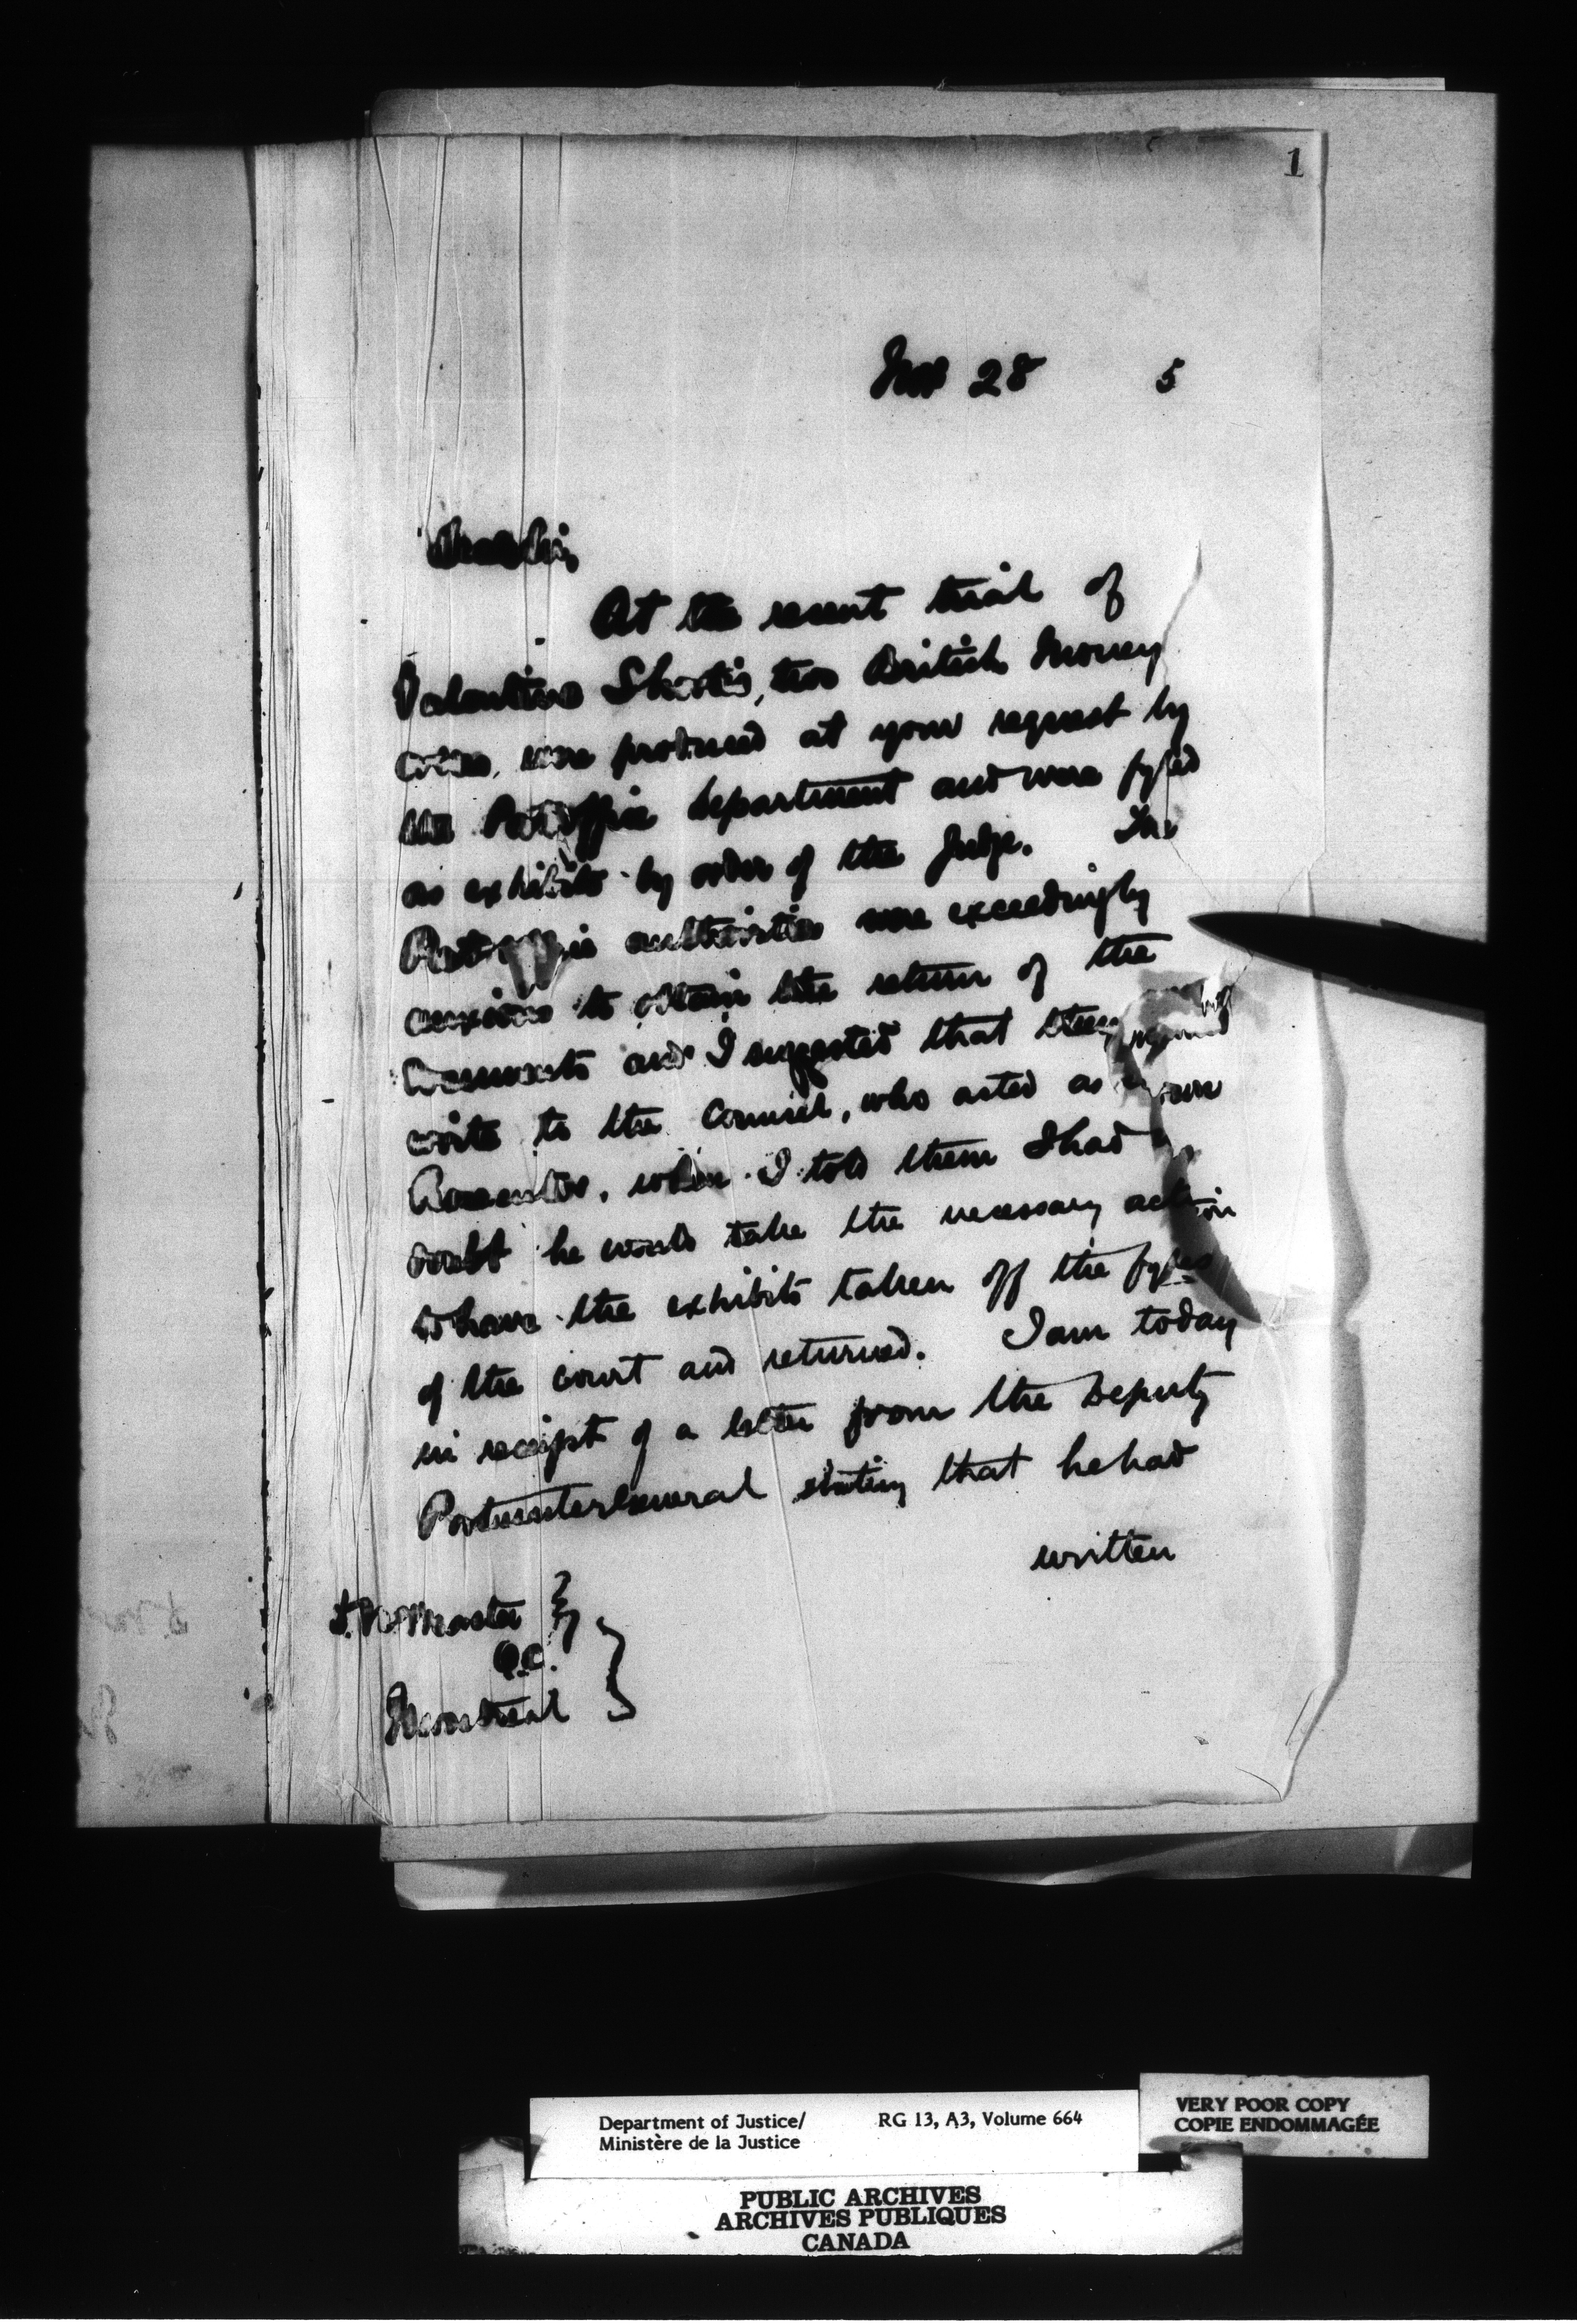 1
Nov 28 5
Dear Sir,
At the recent trial of
Valentine Shortis, two British Money
were produced at your request by
the Post office Department and were fyled
as exhibits by order of the Judge. The
Post office authorities were exceedingly
anxious to obtain the return of the
documents and I suggested that they
write to the Counsel, who acted as Crown
Prosecutor, when I told them I had
doubt he would take the necessary action
to have the exhibits taken off the fyles
of the court and returned. I am today
in receipt of a letter from the Deputy
Postmaster General stating that he had
written
D. McMaster
Q.C.
Montreal
Department of Justice/ RG 13, A3, Volume 664
Ministère de la Justice
VERY POOR COPY
COPIE ENDOMMAGÉE
PUBLIC ARCHIVES
ARCHIVES PUBLIQUES
CANADA